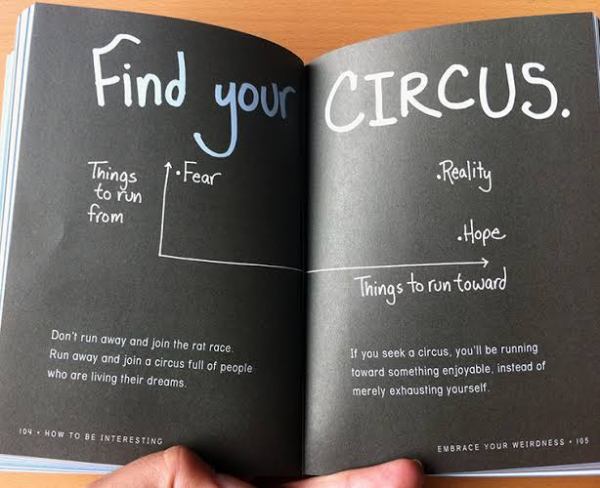 Find your CIRCUS.
Things
to run
from
•Fear
•Reality
•Hope
Things to run toward
Don't run away and join the rat race.
Run away and join a circus full of people
who are living their dreams.
If you seek a circus, you'll be running
toward something enjoyable, instead of
merely exhausting yourself.
104 • HOW TO BE INTERESTING
EMBRACE YOUR WEIRDNESS • 105